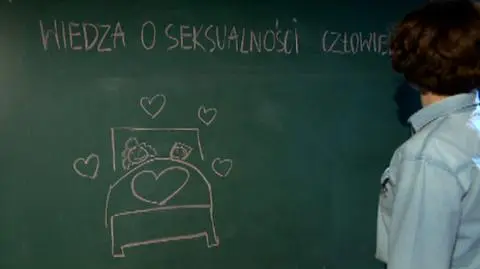 WIEDZA O SEKSUALNOŚCI CZŁOWIE